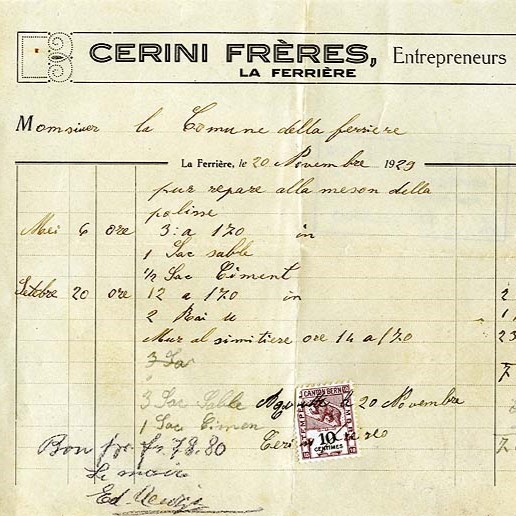 CERINI FRÈRES, Entrepreneurs
LA FERRIÈRE
Monsieur la Comune della ferriere
La Ferrière, le 20 Novembre 1929
pur repare alla meson della
polisse
Mai 6 ore 3: a 1.70 in
1 Sac sable
1/2 Sac Ciment
Setebre 20 ore 12 a 1.70 in 2
2 Rai 1
Mur al simitiere ore 14 a 1.70 23
3 Sac 7
3 Sac Sable le 20 Novembre
1 Sac Cimen
CANTON BERN
10
CENTIMES
Bon pr fr. 78.80
Le maire
Ed.